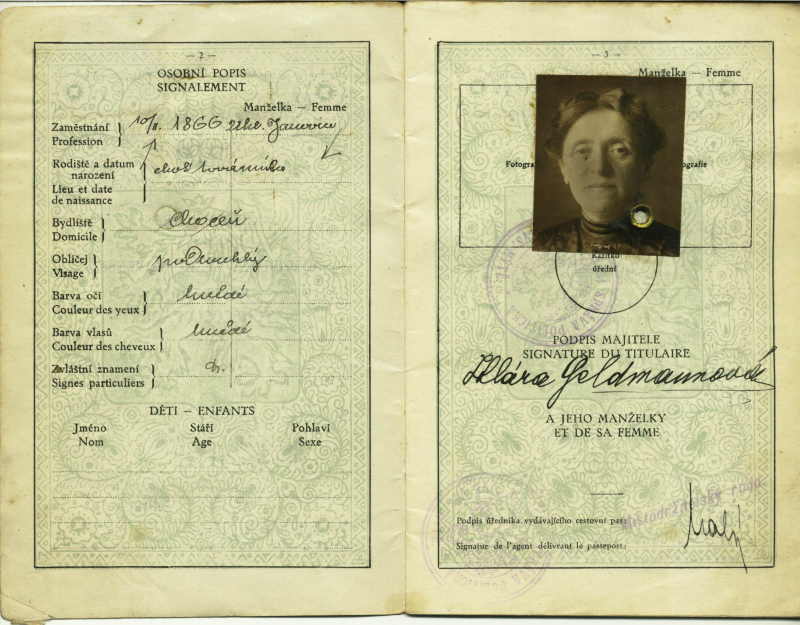 — 2 —
OSOBNÍ POPIS
SIGNALEMENT
Manželka — Femme
Zaměstnání
Profession
1866
Rodiště a datum
narození
choť továrníka
Lieu et date
de naissance
Bydliště
Choceň
Domicile
Obličej
podlouhlý
Visage
Barva očí
hnědé
Couleur des yeux
Barva vlasů
hnědé
Couleur des cheveux
Zvláštní znamení
Signes particuliers
DĚTI — ENFANTS
Jméno Stáří Pohlaví
Nom Age Sexe
— 3 —
Manželka — Femme
úřední
PODPIS MAJITELE
SIGNATURE DU TITULAIRE
Klára Geldmannová
A JEHO MANŽELKY
ET DE SA FEMME
Podpis úředníka vydávajícího cestovní pas:
Místodržitelský rada
Signature de l'agent délivrant le passeport:
Malý